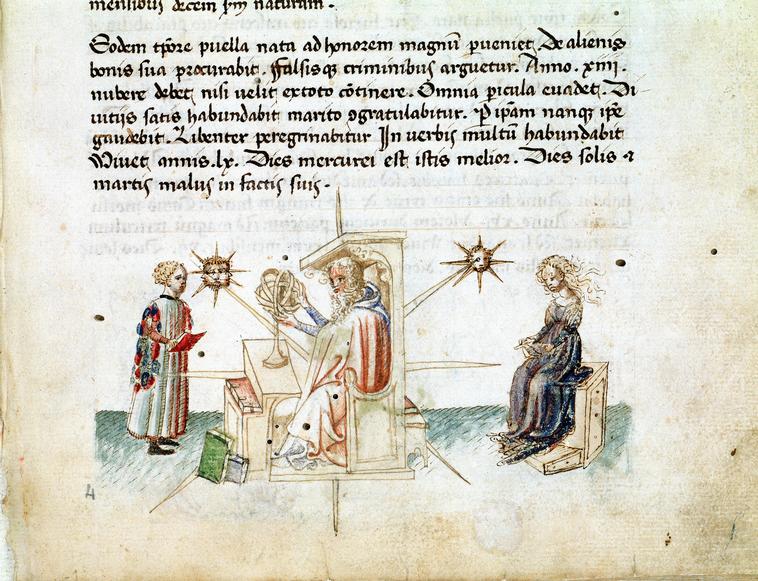 mensibus decem s̄m naturam.
Eodem tp̄ore puella nata ad honorem magnū pueniet. De alienis
bonis sua procurabit. Falsisq criminibus arguetur. Anno. xiiii.
nubere debet nisi velit ex toto cōtinere. Omnia picula evadet. Di
vitiis satis habundabit marito ɔgratulabitur. P ipam nanq ipe
gaudebit. Libenter peregrinabitur In verbis multū habundabit
Vivet annis .lx. Dies mercurei est istis melior. Dies solis ⁊
martis malus in factis suis.
4